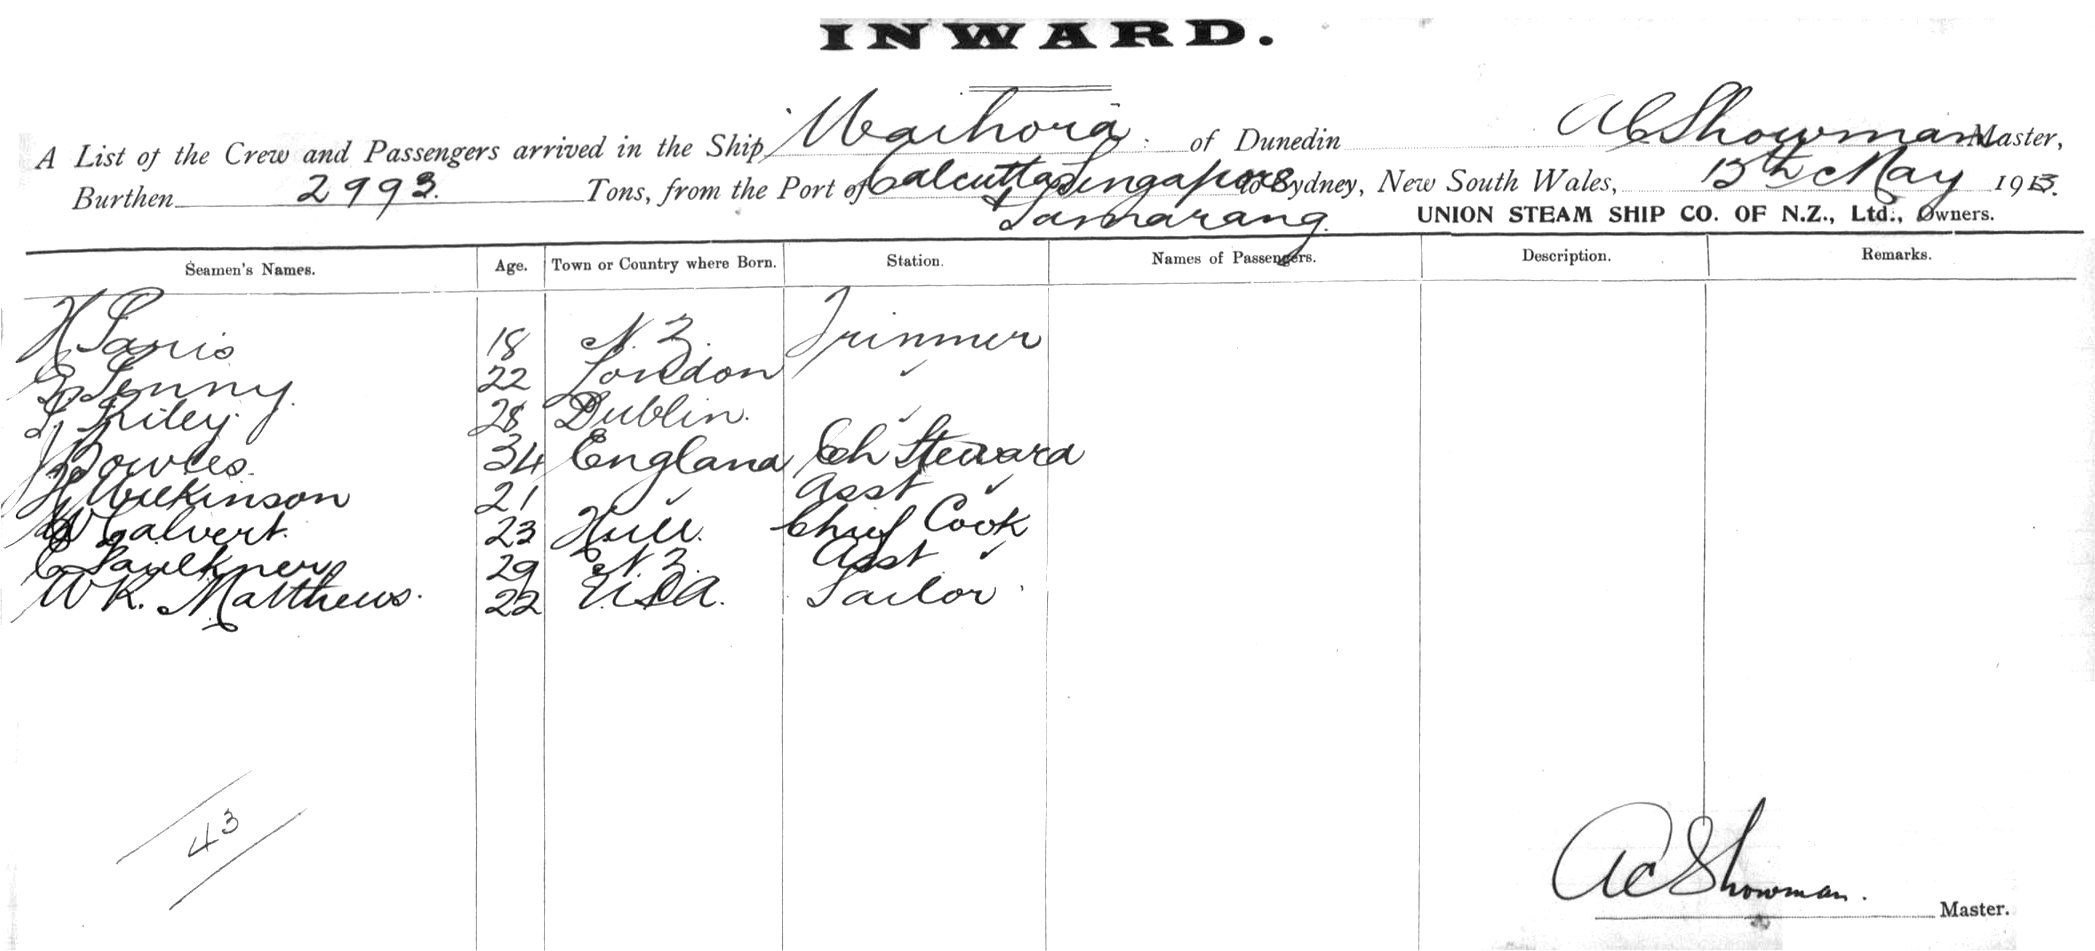 INWARD.
A List of the Crew and Passengers arrived in the Ship Waihora of Dunedin AC Showman Master,
Burthen 2993. Tons, from the Port of Calcutta Singapore to Sydney, New South Wales, 13th May 1913.
Samarang. UNION STEAM SHIP CO. OF N.Z., Ltd., Owners.
Seamen's Names. Age. Town or Country where Born. Station. Names of Passengers. Description. Remarks.
H 18 N.Z. Trimmer
22 London ✓
Riley. 28 Dublin. ✓
Bowles. 34 England Ch Steward
H Wilkinson 21 ✓ Asst ✓
W Calvert. 23 Hull. Chief Cook
C Faulkner 29 N.Z. Asst ✓
W K. Matthews. 22 U.S.A. Sailor
43
AC Showman.
Master.